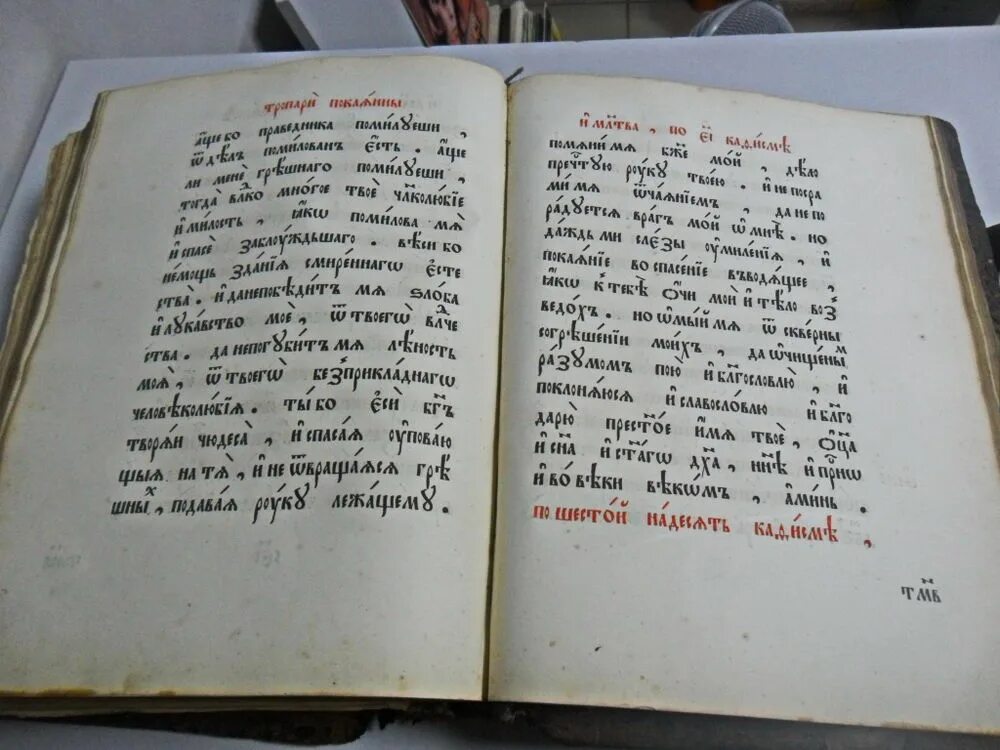 тропари̑ покаѧ́нны
а҆́ще бо праведника помилꙋеши ,
ѿ дѣ́лъ помилованъ є҆́сть . а҆́ще
ли менѐ грѣ́шнаго помилꙋеши ,
тогда̀ влⷣко мно́гое твоѐ чл҃колю́бїе
и҆ ми́лость , ꙗ҆́кѡ поми́лова мѧ̀
и҆ спасѐ заблоу́ждьшаго . вѣ́си бо
не́мощь зда́нїѧ смире́ннагѡ є҆сте
ства̀ . и҆ да непобѣди́тъ мѧ ѕло́ба
и҆ лꙋка́вство моѐ , ѿ твоегѡ̀ влⷣче
ства . да непогꙋби́тъ мѧ лѣ́ность
моѧ̀ , ѿ твоегѡ̀ безприкла́днагѡ
человѣколю́бїѧ . ты́ бо є҆сѝ бг҃ъ
творѧ́и чюдеса̀ , и҆ спаса́ѧ оу҆пова́ю
щыѧ на тѧ̀ , и҆ не ѿвраща́ѧсѧ грѣ́
шныⷯ , подава́ѧ роу́кꙋ лежа́щемꙋ .
и҆ мл҃тва , по є҃і каѳи́смѣ
помѧнѝ мѧ бж҃е мо́й , дѣ́ло
пречⷭ҇тꙋю роу́кꙋ твоею̀ . и҆ не посра
мѝ мѧ ѿча́ѧнїемъ , да не по
ра́дꙋетсѧ вра́гъ мо́й ѡ҆ мнѣ̀ . но
да́ждь ми сле́зы оу҆миле́нїѧ , и҆
покаѧ́нїе во спасе́нїе въводѧ́щее ,
ꙗ҆́кѡ к тебѣ̀ ѻ҆́чи моѝ и҆ тѣ́ло воз
ведо́хъ . но ѡ҆мы́й мѧ ѿ скве́рны
согрѣше́нїи мои́хъ , да ѡ҆чище́ныⷨ
ра́зꙋмомъ пою̀ и҆ блг҃ословлю̀ , и҆
поклонѧ́юсѧ и҆ славосло́влю и҆ блг҃о
дарю̀ престⷪ҇е и҆́мѧ твоѐ , ѻ҆ц҃а
и҆ сн҃а и҆ ст҃а́гѡ дх҃а , нн҃ѣ и҆ при́снѡ
и҆ во́ вѣки вѣкѡ́мъ , а҆ми́нь .
по шесто́й на́десѧть каѳи́смѣ ,
тм҃в